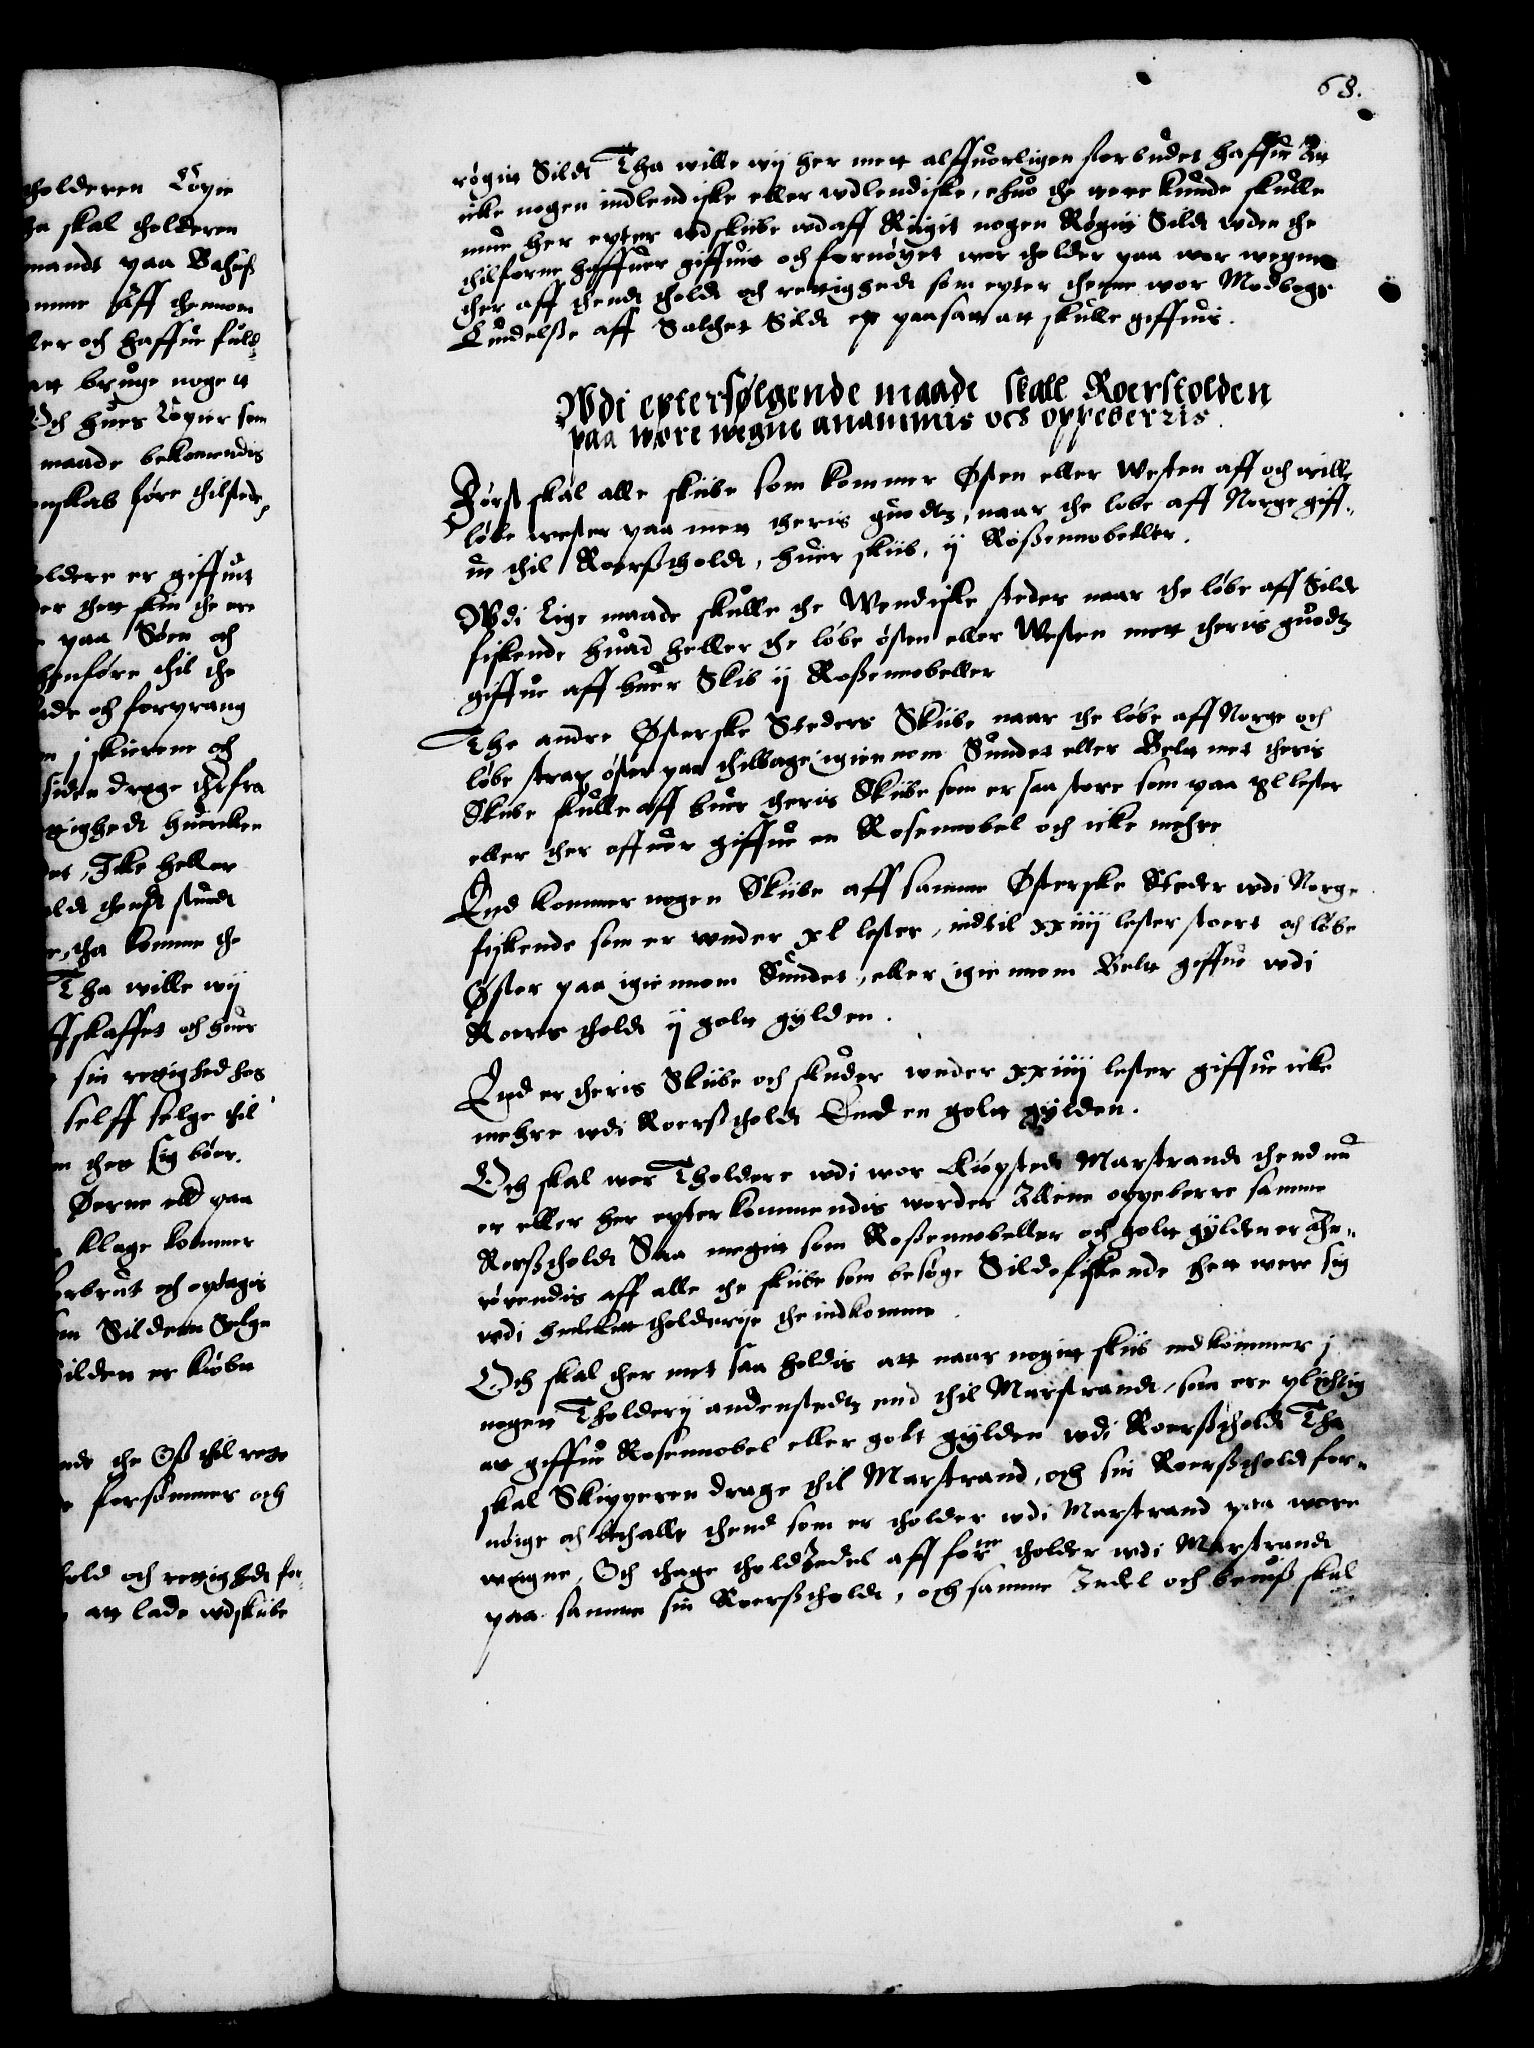 68.
tholderen Løyie
ha skal tholderen
mandt paa Bahus
mme aff thennom
ler och haffue fuld
att bruge nogett
Och hues Løyier som
maade bekomendis
nskab føre thilstede
oldere er giffuit
er thett skin the ere
paa Søen och
henføre thil the
ade och forprang
m j skierene och
siden drage therfra
ettighedt huercken
et, Icke heller
oldt thendt stundt
r, tha komme the
Tha wille wij
ffskaffet och huer
sin rettighed hos
selff selge thil
m thet sig bøer.
Øerne eld paa
klage kommer
forbrut och optagis
m Silden Selge
Silden er kiøbtt
ndt the Oss thil rette
forsømmer och
told och rettighedt for
att lade wdskibe
røgitt Sildt Tha wille wij her mett alffuorligen forbudet haffue Att
icke nogen indlendiske eller wdlendiske, ehuo the were kunde skulle
mue her epter wdskibe wdaff Riigit nogen Røgitt Sildt wden the
thilforne haffuer giffuit och fornøyet wor tholder paa wor wegne
ther aff thendt tholdt och rettighedt som epter thenne wor Medbogs
Liudelsse aff Saltet Sildt er paasatt att skulle giffuis.
Wdi epterfølgende maade skall Roerstolden
paa wore wegne anammis och oppeberris.
Først skal alle skibe som kommer Østen eller Westen aff och wille
løbe wester paa mett theris guodtz, naar the løbe aff Norge giff-
ue thil Roersstholdt, huer skib, ij Rossennobeller.
Wdi Lige maade skulle the Wendiske steder naar the løbe aff Sildt
fiskende huad heller the løbe østen eller Westen mett theris guodtz
giffue aff huer Skib ij Rossennobeller
The andre Østerske Steders Skibe naar the løbe aff Norge och
løbe strax øster paa thilbage igiennom Sundet eller Belt met theris
Skibe skulle aff huer theris Skibe som er saa store som paa xl lester
eller ther offuer giffue en Rosennobel och icke mehre
End kommer nogen Skibe aff samme Østerske Steder wdi Norge
fiskende som er wnder xl lester, indtil xxiiij lester stoert och løbe
Øster paa igiennom Sundet, eller igiennom Belt giffue wdi
Roerstholdt ij goltt gylden.
End er theris Skibe och skuder wnder xxiiij lester giffue icke
mehre wdi Roersstholdt End en goltt gylden.
Och skal wor Tholdere wdi wor Kiøpstedt Marstrandt thend nu
er eller her epter kommendis worder Allene oppeberre samme
Roersstholdt Saa megitt som Rossennobeller och goltt gylden er An-
rørendis aff alle the skibe som besøge Sildefiskende thett were sig
wdi huilckett tholderije the indkomme
Och skal ther met saa holdis att naar nogitt skib indkommer j
nogen Tholderij andenstedtz end thil Marstrandt, som ere plichtig
at giffue Rosennobel eller golt gylden wdi Roersstholdt Tha
skal Skipperen drage thil Marstrand, och sin Roersstholdt for-
nøige och bethalle thend som er tholder wdi Marstrand paa wore
wegne, Och thage tholdzedel aff forne tholder wdi Marstrandt
paa samme sin Roersstholdt, och samme Zedel och beuiss skal